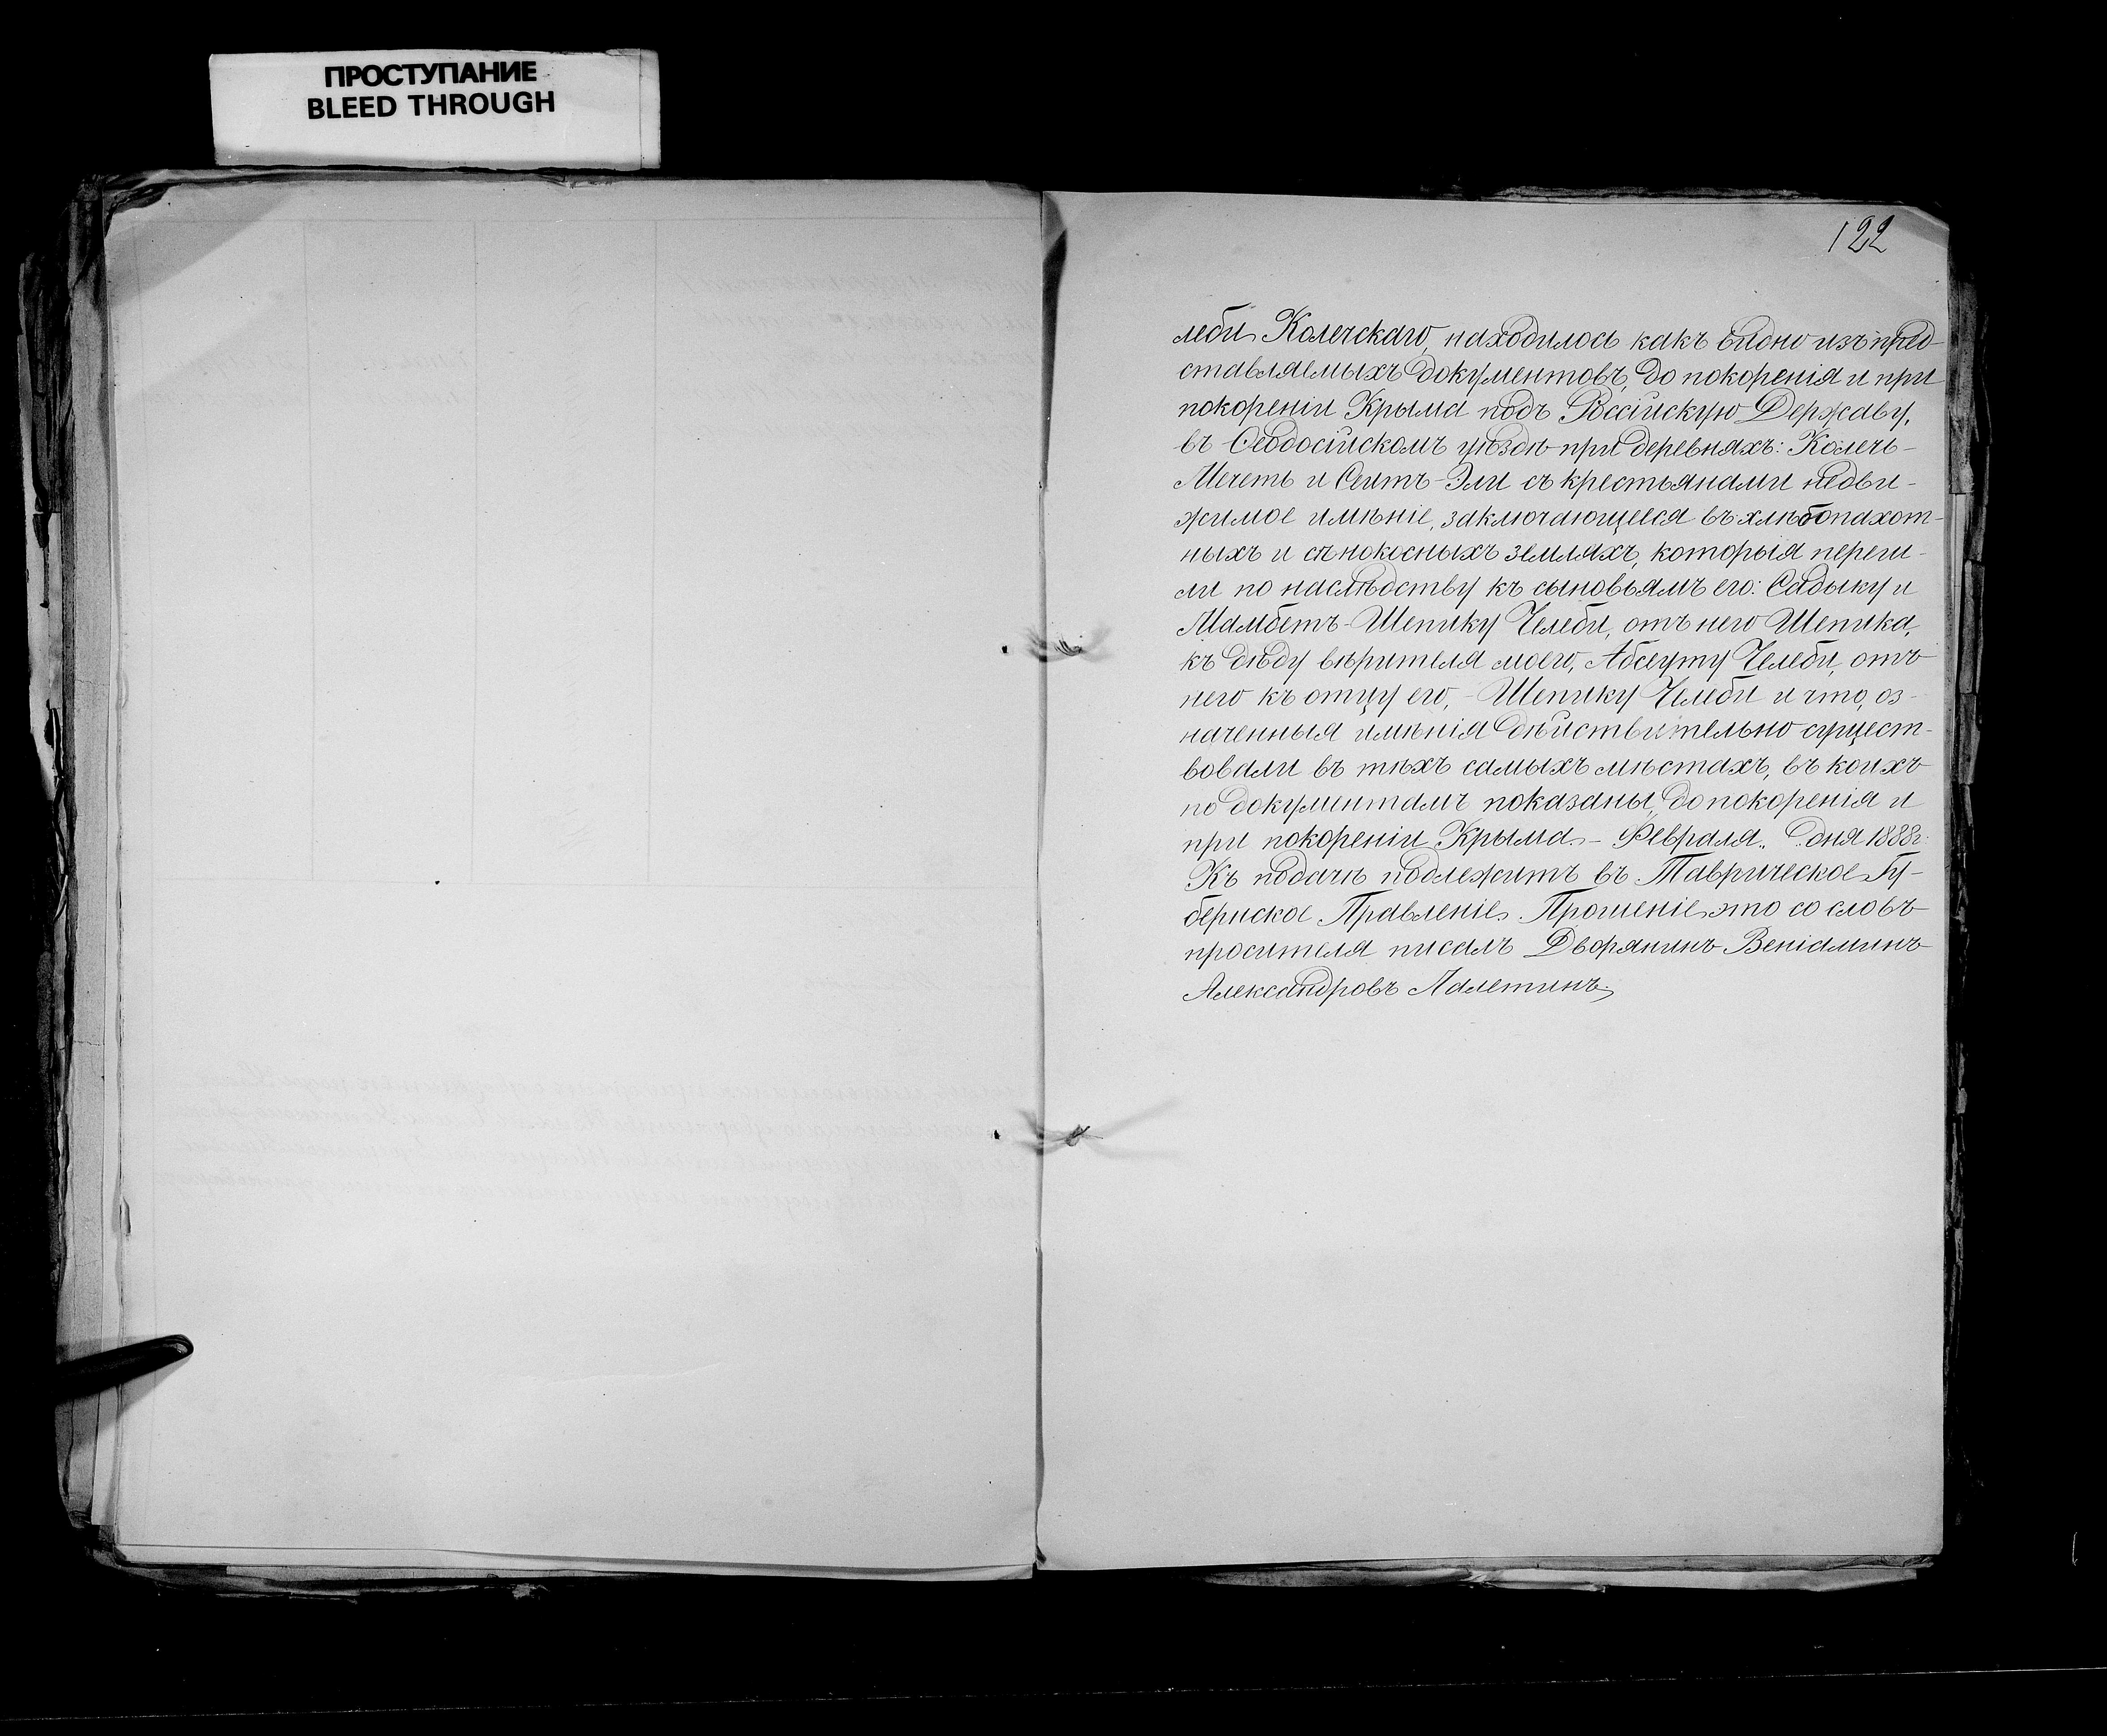 ПРОСТУПАНИЕ
BLEED THROUGH
122
леби Колечскаго, находилось какъ видно изъ пред-
ставляемыхъ документовъ, до покоренія и при
покореніи Крыма подъ Россійскую Державу,
въ Ѳеодосійскомъ уѣздѣ при деревняхъ: Колечь-
Мечеть и Сеитъ-Эли съ крестьянами недви-
жимое имѣніе, заключающееся въ хлѣбопахот-
ныхъ и сѣнокосныхъ земляхъ, которыя переш-
ли по наслѣдству къ сыновьямъ его: Садыку и
Мамбетъ-Шепику Челеби, отъ него Шепика,
къ дѣду вѣрителя моего, Абсеуту Челеби, отъ
него къ отцу его, - Шепику Челеби и что, оз-
наченныя имѣнія дѣйствительно сущест-
вовали въ тѣхъ самыхъ мѣстахъ, въ коихъ
по документамъ показаны, до покоренія и
при покореніи Крыма. - Февраля „ дня 1888г.
Къ подачѣ подлежитъ въ Таврическое Гу-
бернское Правленіе. Прошеніе это со словъ
просителя писалъ Дворянинъ Веніаминъ
Александровъ